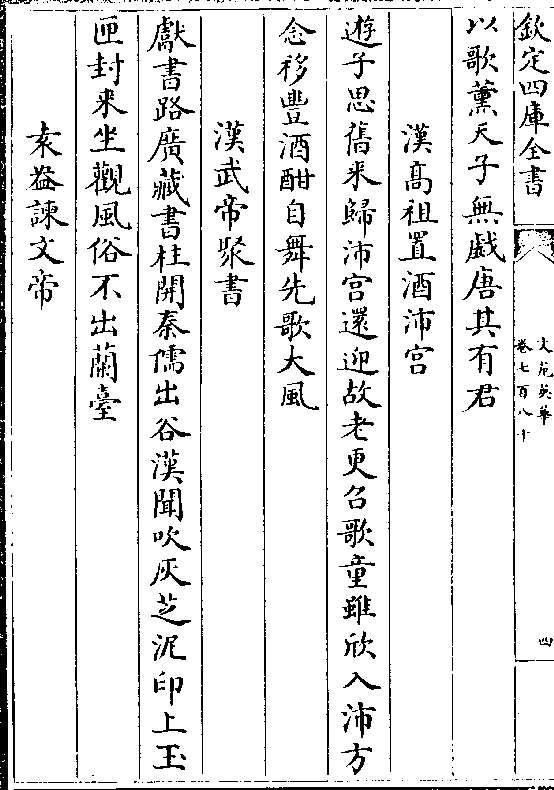 欽定四庫全書
文苑英華
卷七百八十
四
以歌薰天子無戯唐其有君
漢髙祖置酒沛宫
遊子思舊来歸沛宫還迎故老更召歌童雖欣入沛方
念移豐酒酣自舞先歌大風
漢武帝聚書
獻書路廣藏書柱開秦儒出谷漢聞吹灰芝泥印上玉
匣封来坐觀風俗不出蘭臺
袁盎諫文帝